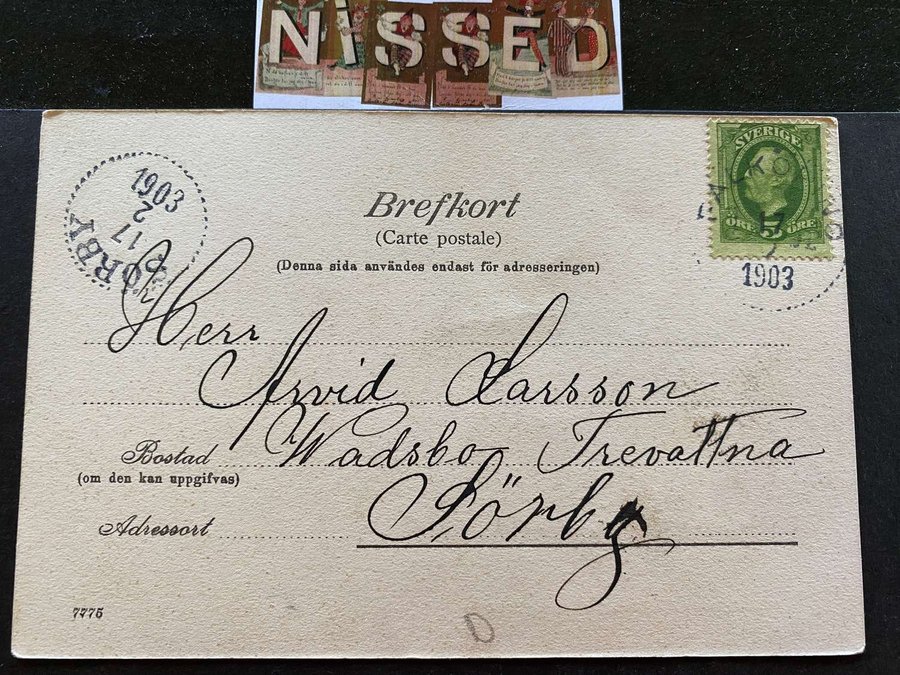 NISSED
SVERIGE
ÖRE 5 ÖRE
FALKÖPING
17
2
1903
1903
2
17
SÖRBY
Brefkort
(Carte postale)
(Denna sida användes endast för adresseringen)
Herr
Arvid Larsson
Bostad Wadsbo Trevattna
(om den kan uppgifvas)
Adressort Sörby
7775
D